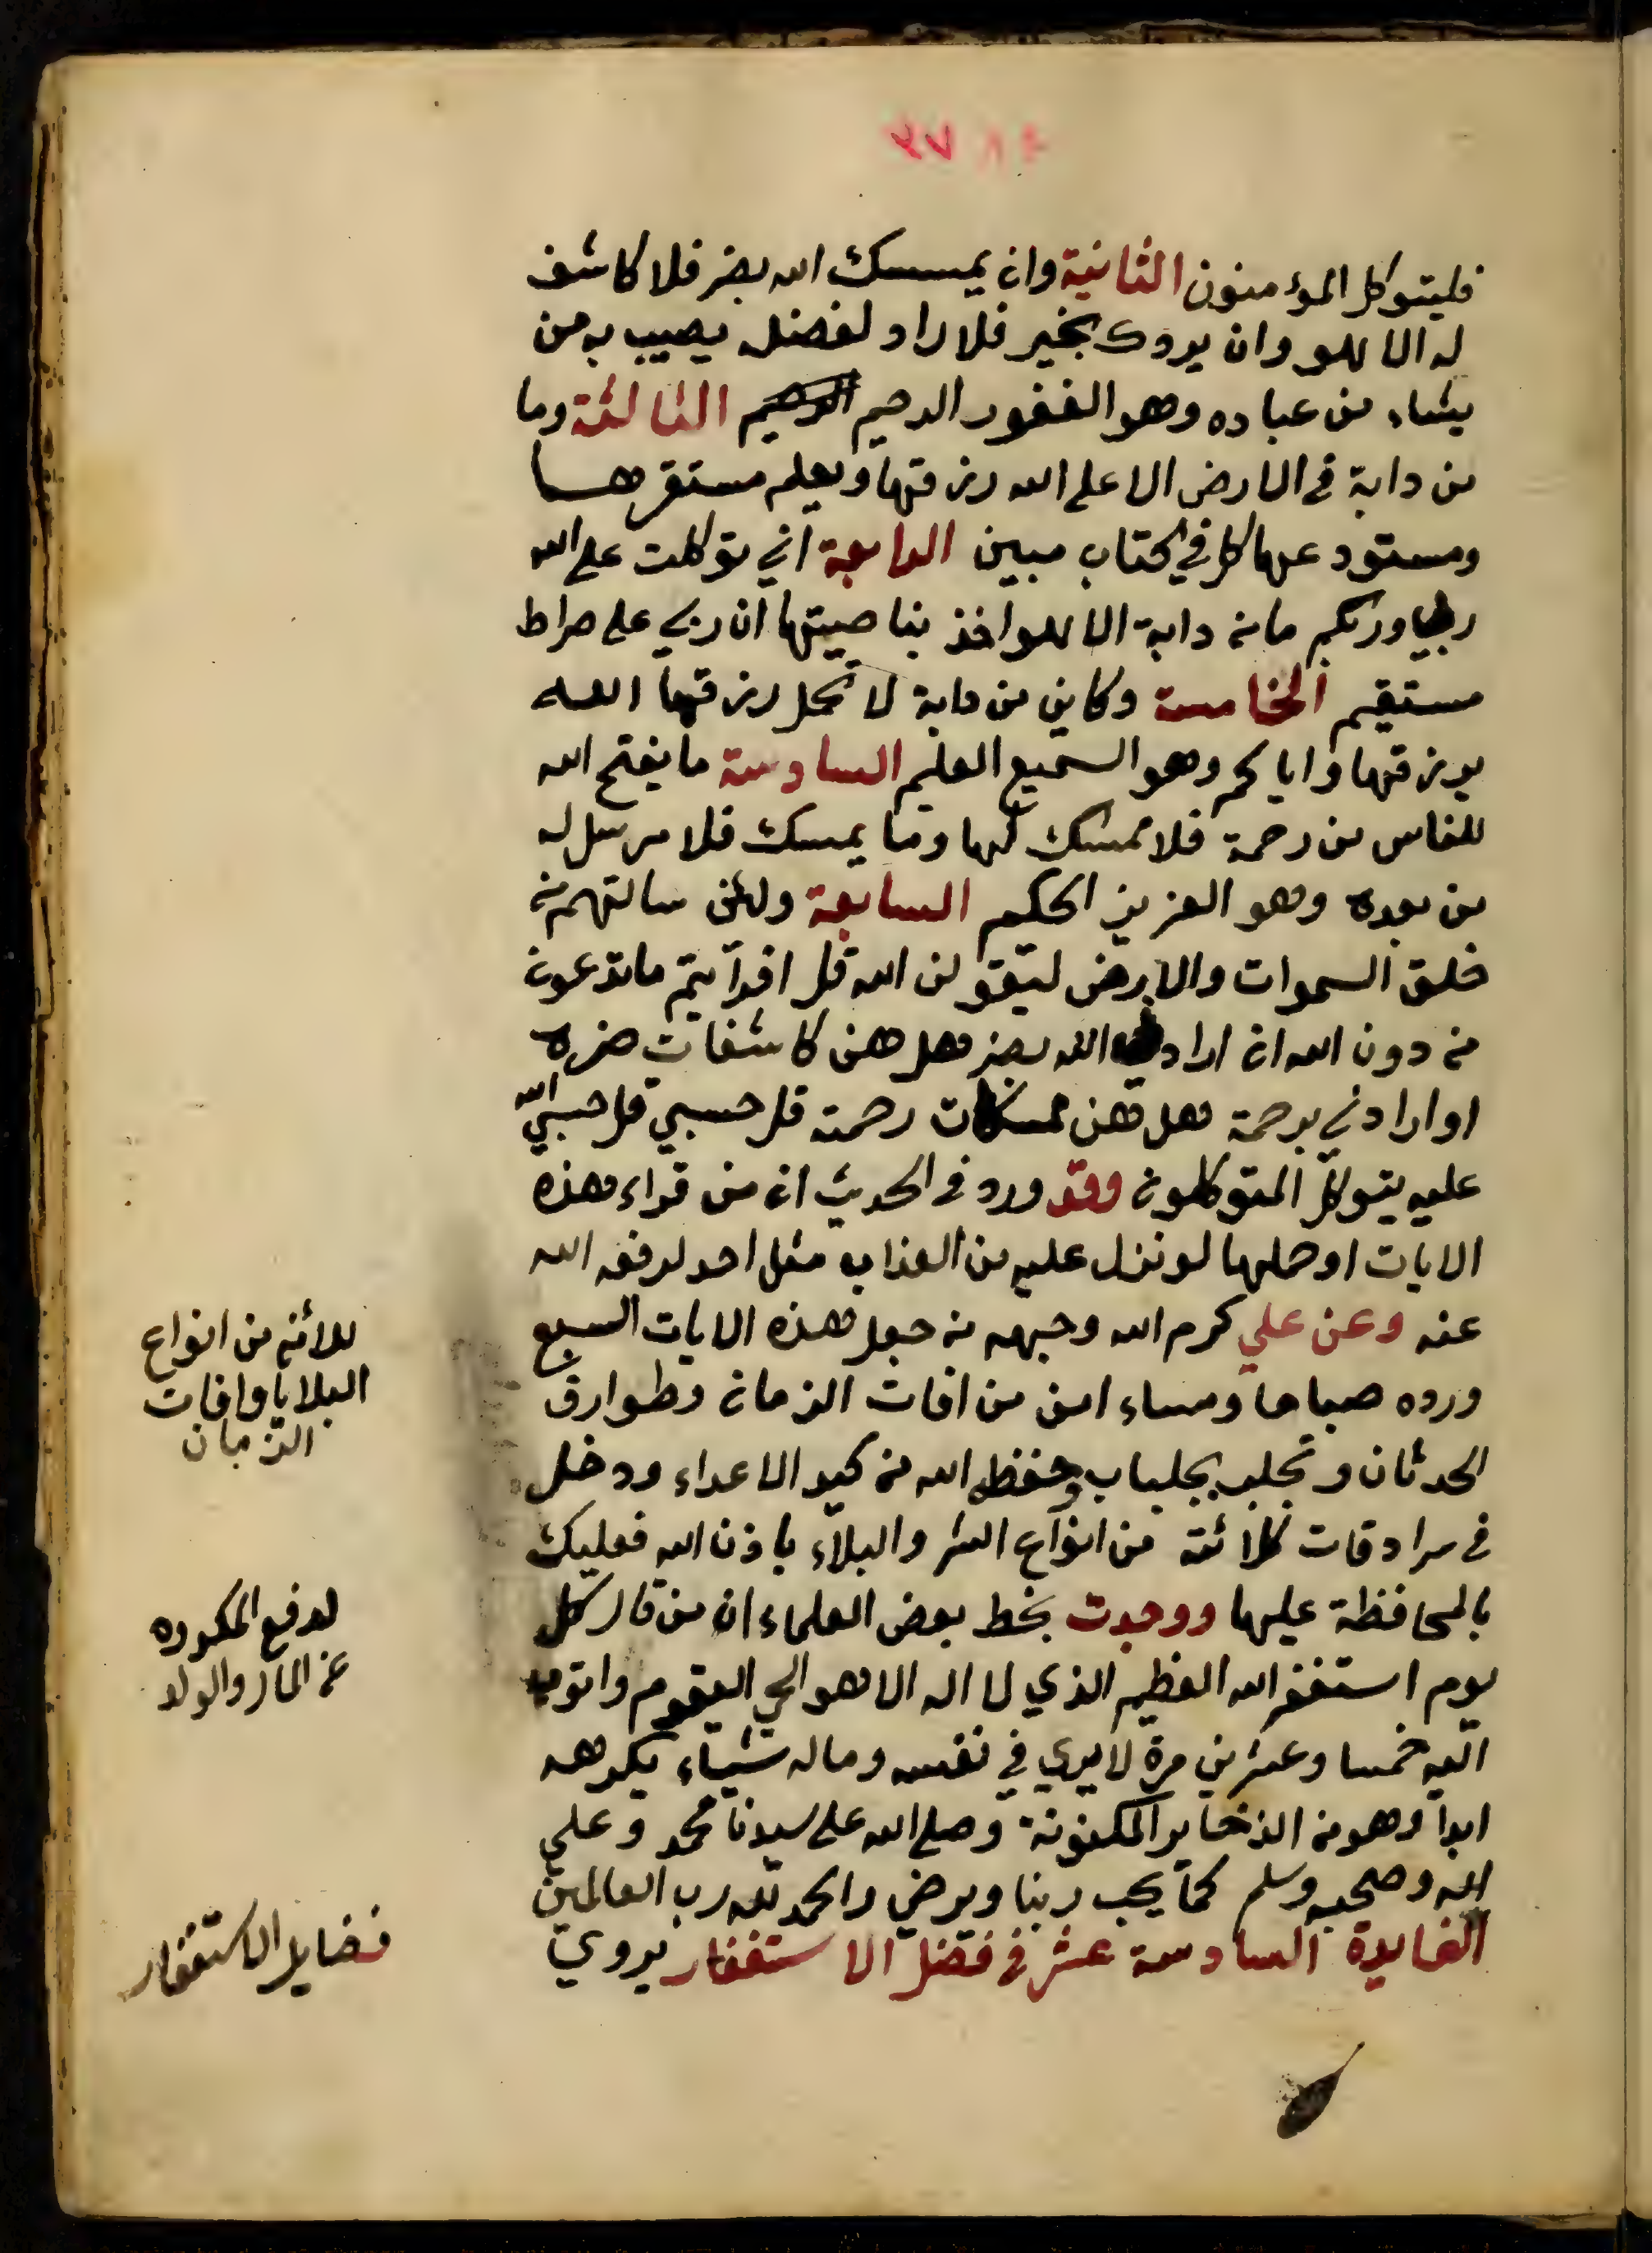 ٣٧
فليتوكل المؤمنون الثانية وان يمسسك الله بضر فلا كاشف
له الا هو وان يردك بخير فلا راد لفضله يصيب به من
يشاء من عباده وهو الغفور الرحيم الرحيم الثالثة وما
من دابة في الارض الا على الله رزقها ويعلم مستقرها
ومستودعها كل في كتاب مبين الرابعة اني توكلت على الله
ربي وربكم ما من دابة الا هو اخذ بناصيتها ان ربي على صراط
مستقيم الخامسة وكاين من دابة لا تحمل رزقها الله
يرزقها واياكم وهو السميع العليم السادسة ما يفتح الله
للناس من رحمة فلا ممسك لها وما يمسك فلا مرسل له
من بعده وهو العزيز الحكيم السابعة ولئن سالتهم من
خلق السموات والارض ليقولن الله قل افرأيتم ما تدعون
من دون الله ان ارادني الله بضر هل هن كاشفات ضره
او ارادني برحمة هل هن ممسكات رحمته قل حسبي قل حسبي الله
عليه يتوكل المتوكلون وقد ورد في الحديث ان من قراء هذه
الايات او حملها لو نزل عليه من العذاب مثل احد لرفعه الله
عنه وعن علي كرم الله وجهه من جعل هذه الايات السبع
ورده صباحا ومساء امن من افات الزمان وطوارق
الحدثان وتجلبب بجلباب حفظ الله من كيد الاعداء ودخل
في سرادقات كلائته من انواع الشر والبلاء باذن الله فعليك
بالمحافظة عليها ووجدت بخط بعض العلماء ان من قال كل
يوم استغفر الله العظيم الذي لا اله الا هو الحي القيوم واتوب
اليه خمسا وعشرين مرة لا يري في نفسه وماله شياء يكرهه
ابدا وهو من الذخاير المكنونة وصلى الله على سيدنا محمد وعلى
اله وصحبه وسلم كما يحب ربنا ويرضي والحمد لله رب العالمين
الفايدة السادسة عشر في فضل الاستغفار يروي
من انواع
البلايا وافات
الزمان
لدفع المكروه
عن المال والولد
فضايل الاستغفار